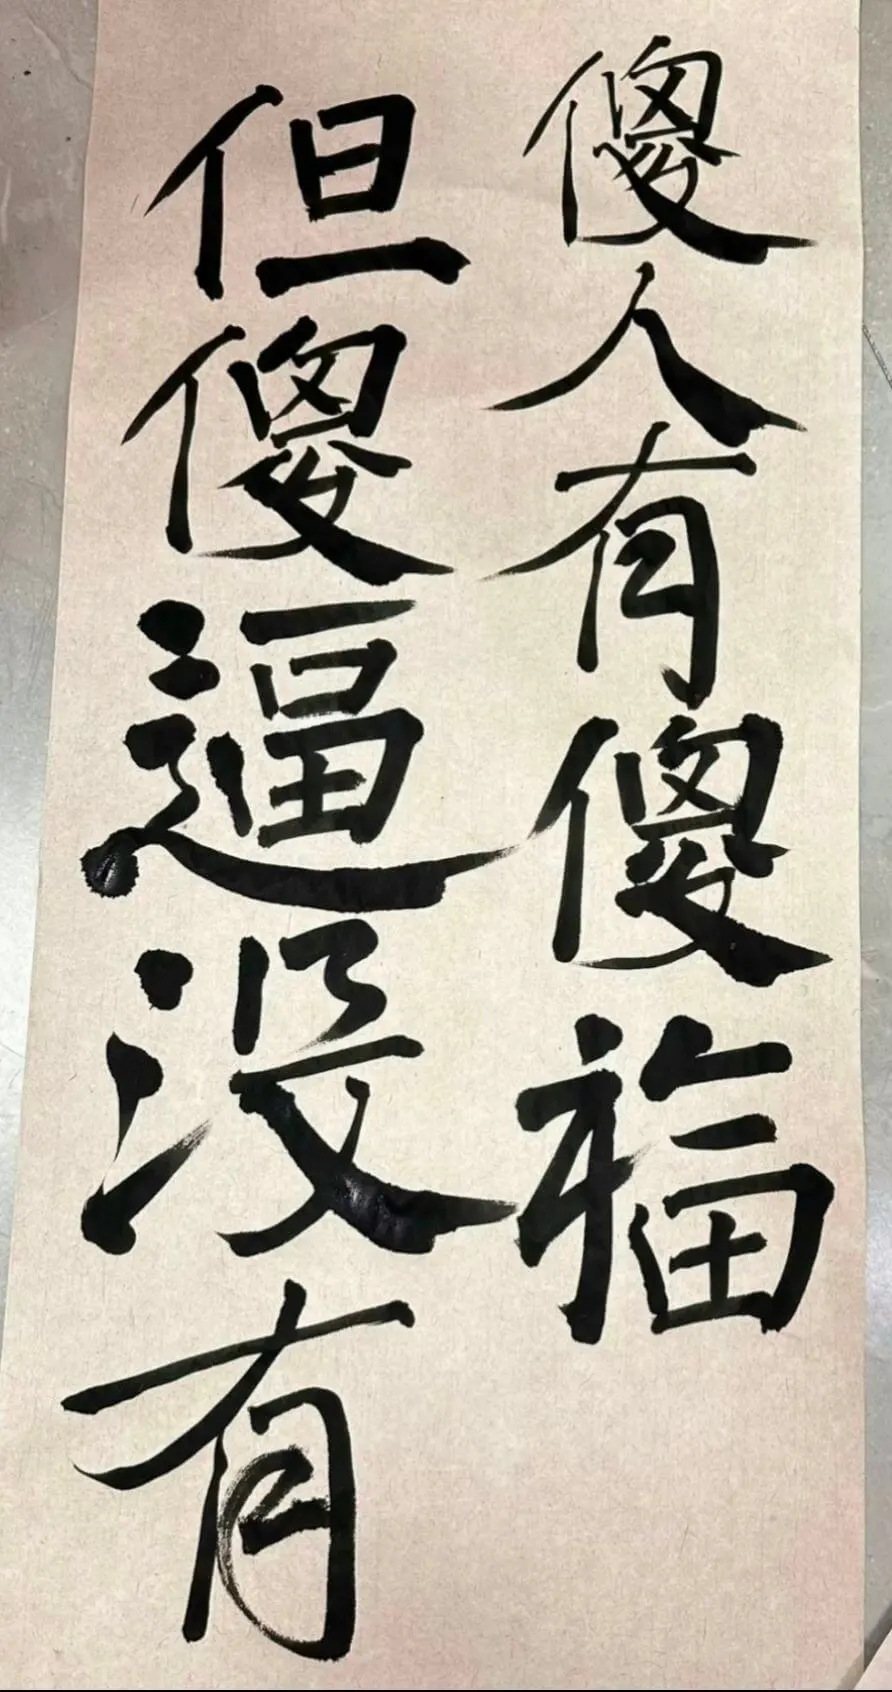 傻人有傻福
但傻逼没有